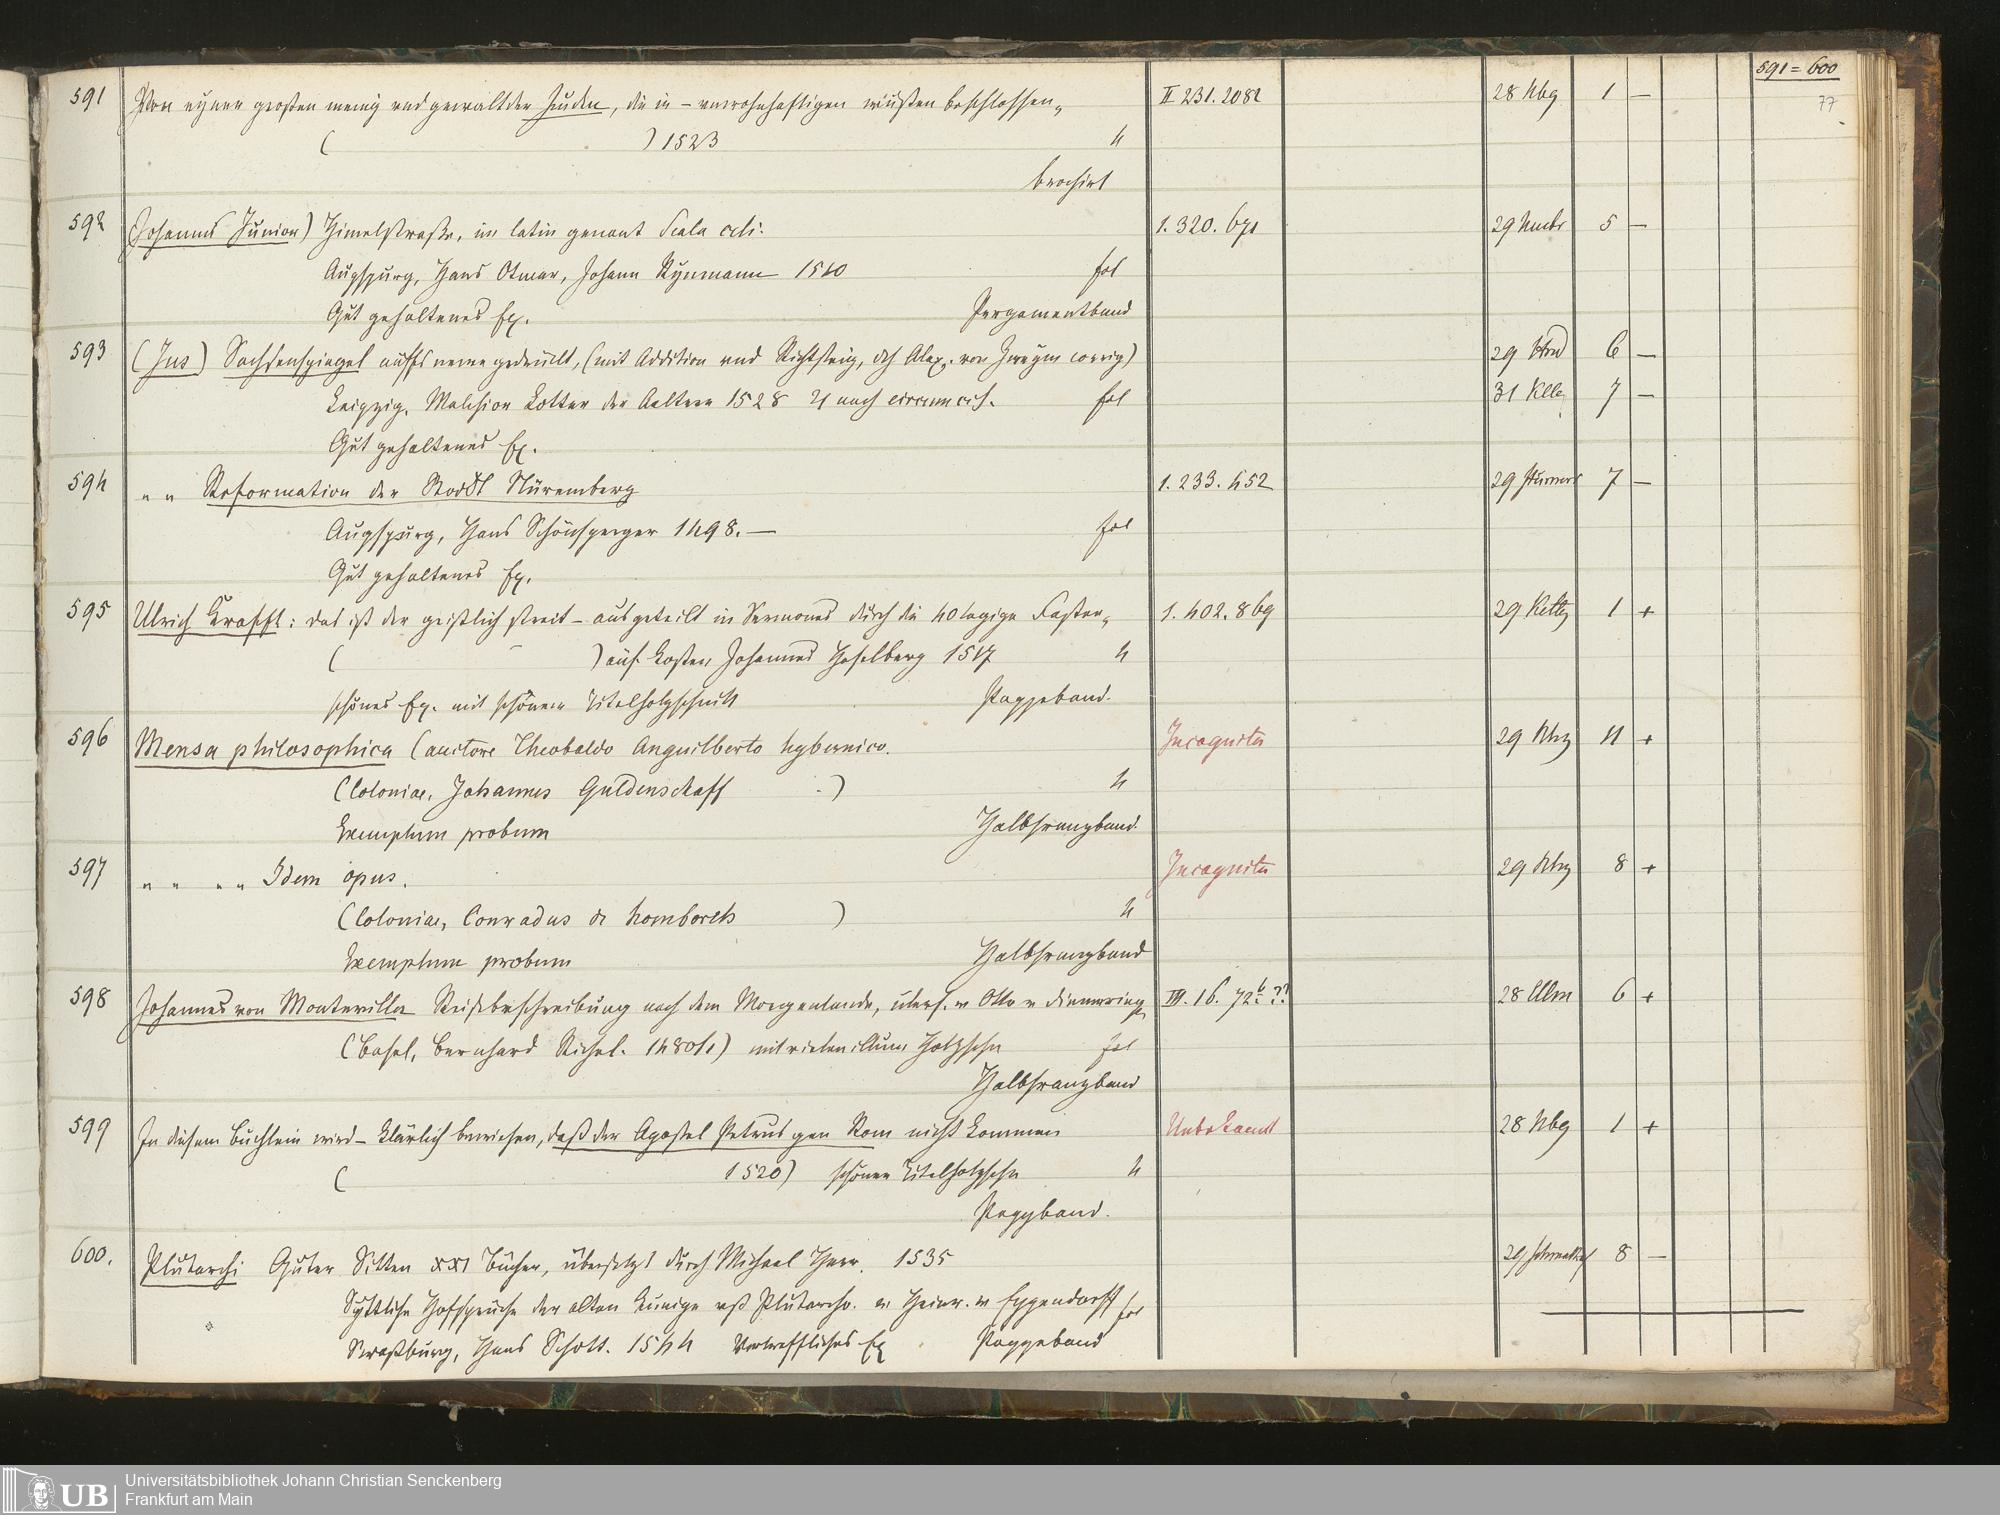 591 = 600
77
591 Von eynen großen menig und gewallt der Juden, die in – unwohnhaftigen wüsten beschlossen„ II 231. 2082 28 Nbg 1 —
( ) 1523 4
brochirt
592 Johannes Junior) Himelstraße, im latin genant Scala celi. 1. 320. 691 29 5 —
Augspurg, Hans Otmar, Johann Rynmann 1510 fol
Gut gehaltenes Ex. Pergamentband
593 (Jus) Sachsenspiegel auffs newe gedruckt, (mit Addition und Richtsteig, dch Alex. von Zweym corrig) 29 6 —
Leipzig, Melchior Lotter der Aeltere 1528 21 nach circumcis. fol 31 Klle 7 —
Gut gehaltenes Ex.
594 „ „ Reformation der Stadt Nüremberg 1. 233. 452 29 7 —
Augspurg, Hans Schönsperger 1498. — fol
Gut gehaltenes Ex.
595 Ulrich Krafft: das ist der geistlich streit – ausgeteilt in Sermones durch die 40 tagige Fasten„ 1. 402. 869 29 1 +
( ) auf Kosten Johannes Haselberg 1517 4
schönes Ex. mit schönem Titelholzschnitt Pappeband.
596 Mensa philosophica (auctore Theobaldo Anguilberto hybernico. Incognita 29 11 +
(Coloniae, Johannes Guldenschaff .) 4
Exemplum probum Halbfranzband.
597 „ „ „ „ Idem opus. Incognita 29 8 +
(Coloniae, Conradus de homborch ) 4
Exemplum probum Halbfranzband
598 Johannes von Montevilla Reißbeschreibung nach dem Morgenlande, übers. v Otto v diemeringen III. 16. 72b ?? 28 Ulm 6 +
(Basel, Bernhard Richel. 1480/1) mit vielen illum Holzschn fol
Halbfranzband
599 In diesem Buchlein wird – klärlich bewiesen, daß der Apostel Petrus gen Rom nicht kommen Unbekannt 28 Nbg 1 +
( 1520) schöner Titelholzschn 4
Pappband.
600. Plutarchi Guter Sitten xxi Bücher, übersetzt durch Michael Herr. 1535 29 8 —
Syttliche Hofsprüche der alten Kunige uß Plutarcho. v. Heinr. v Eppendorff fol
Straßburg, Hans Schott. 1544 Vortreffliches Ex Pappeband
UB
Universitätsbibliothek Johann Christian Senckenberg
Frankfurt am Main